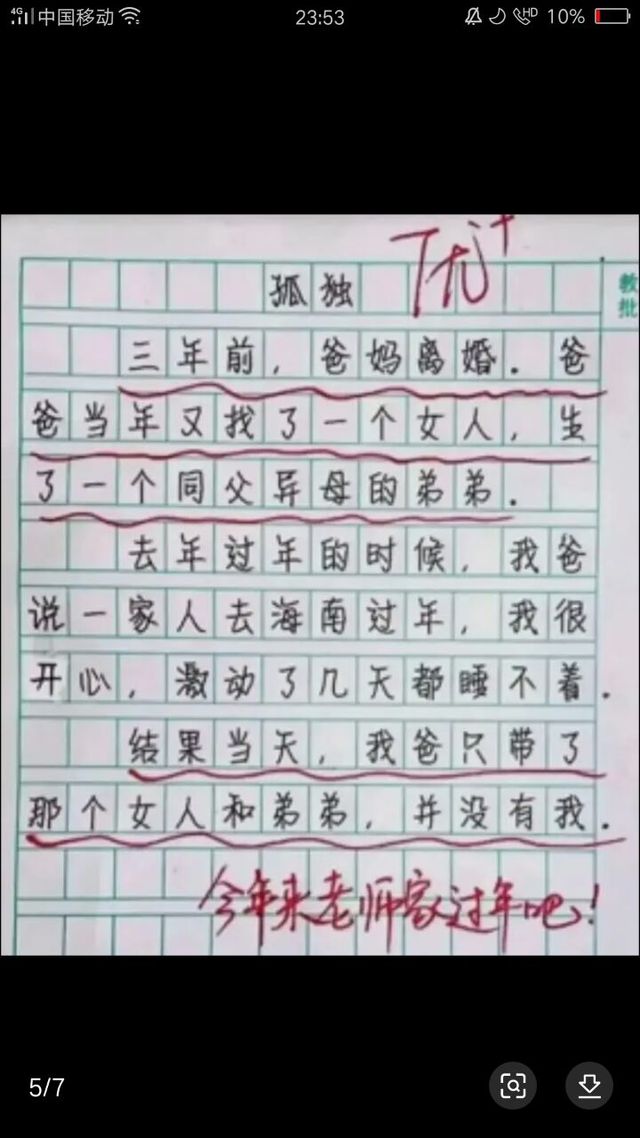 4G 中国移动 23:53 HD 10%
优+
孤独
教
批
三年前，爸妈离婚．爸
爸当年又找了一个女人，生
了一个同父异母的弟弟．
去年过年的时候，我爸
说一家人去海南过年，我很
开心，激动了几天都睡不着．
结果当天，我爸只带了
那个女人和弟弟，并没有我．
今年来老师家过年吧！
5/7